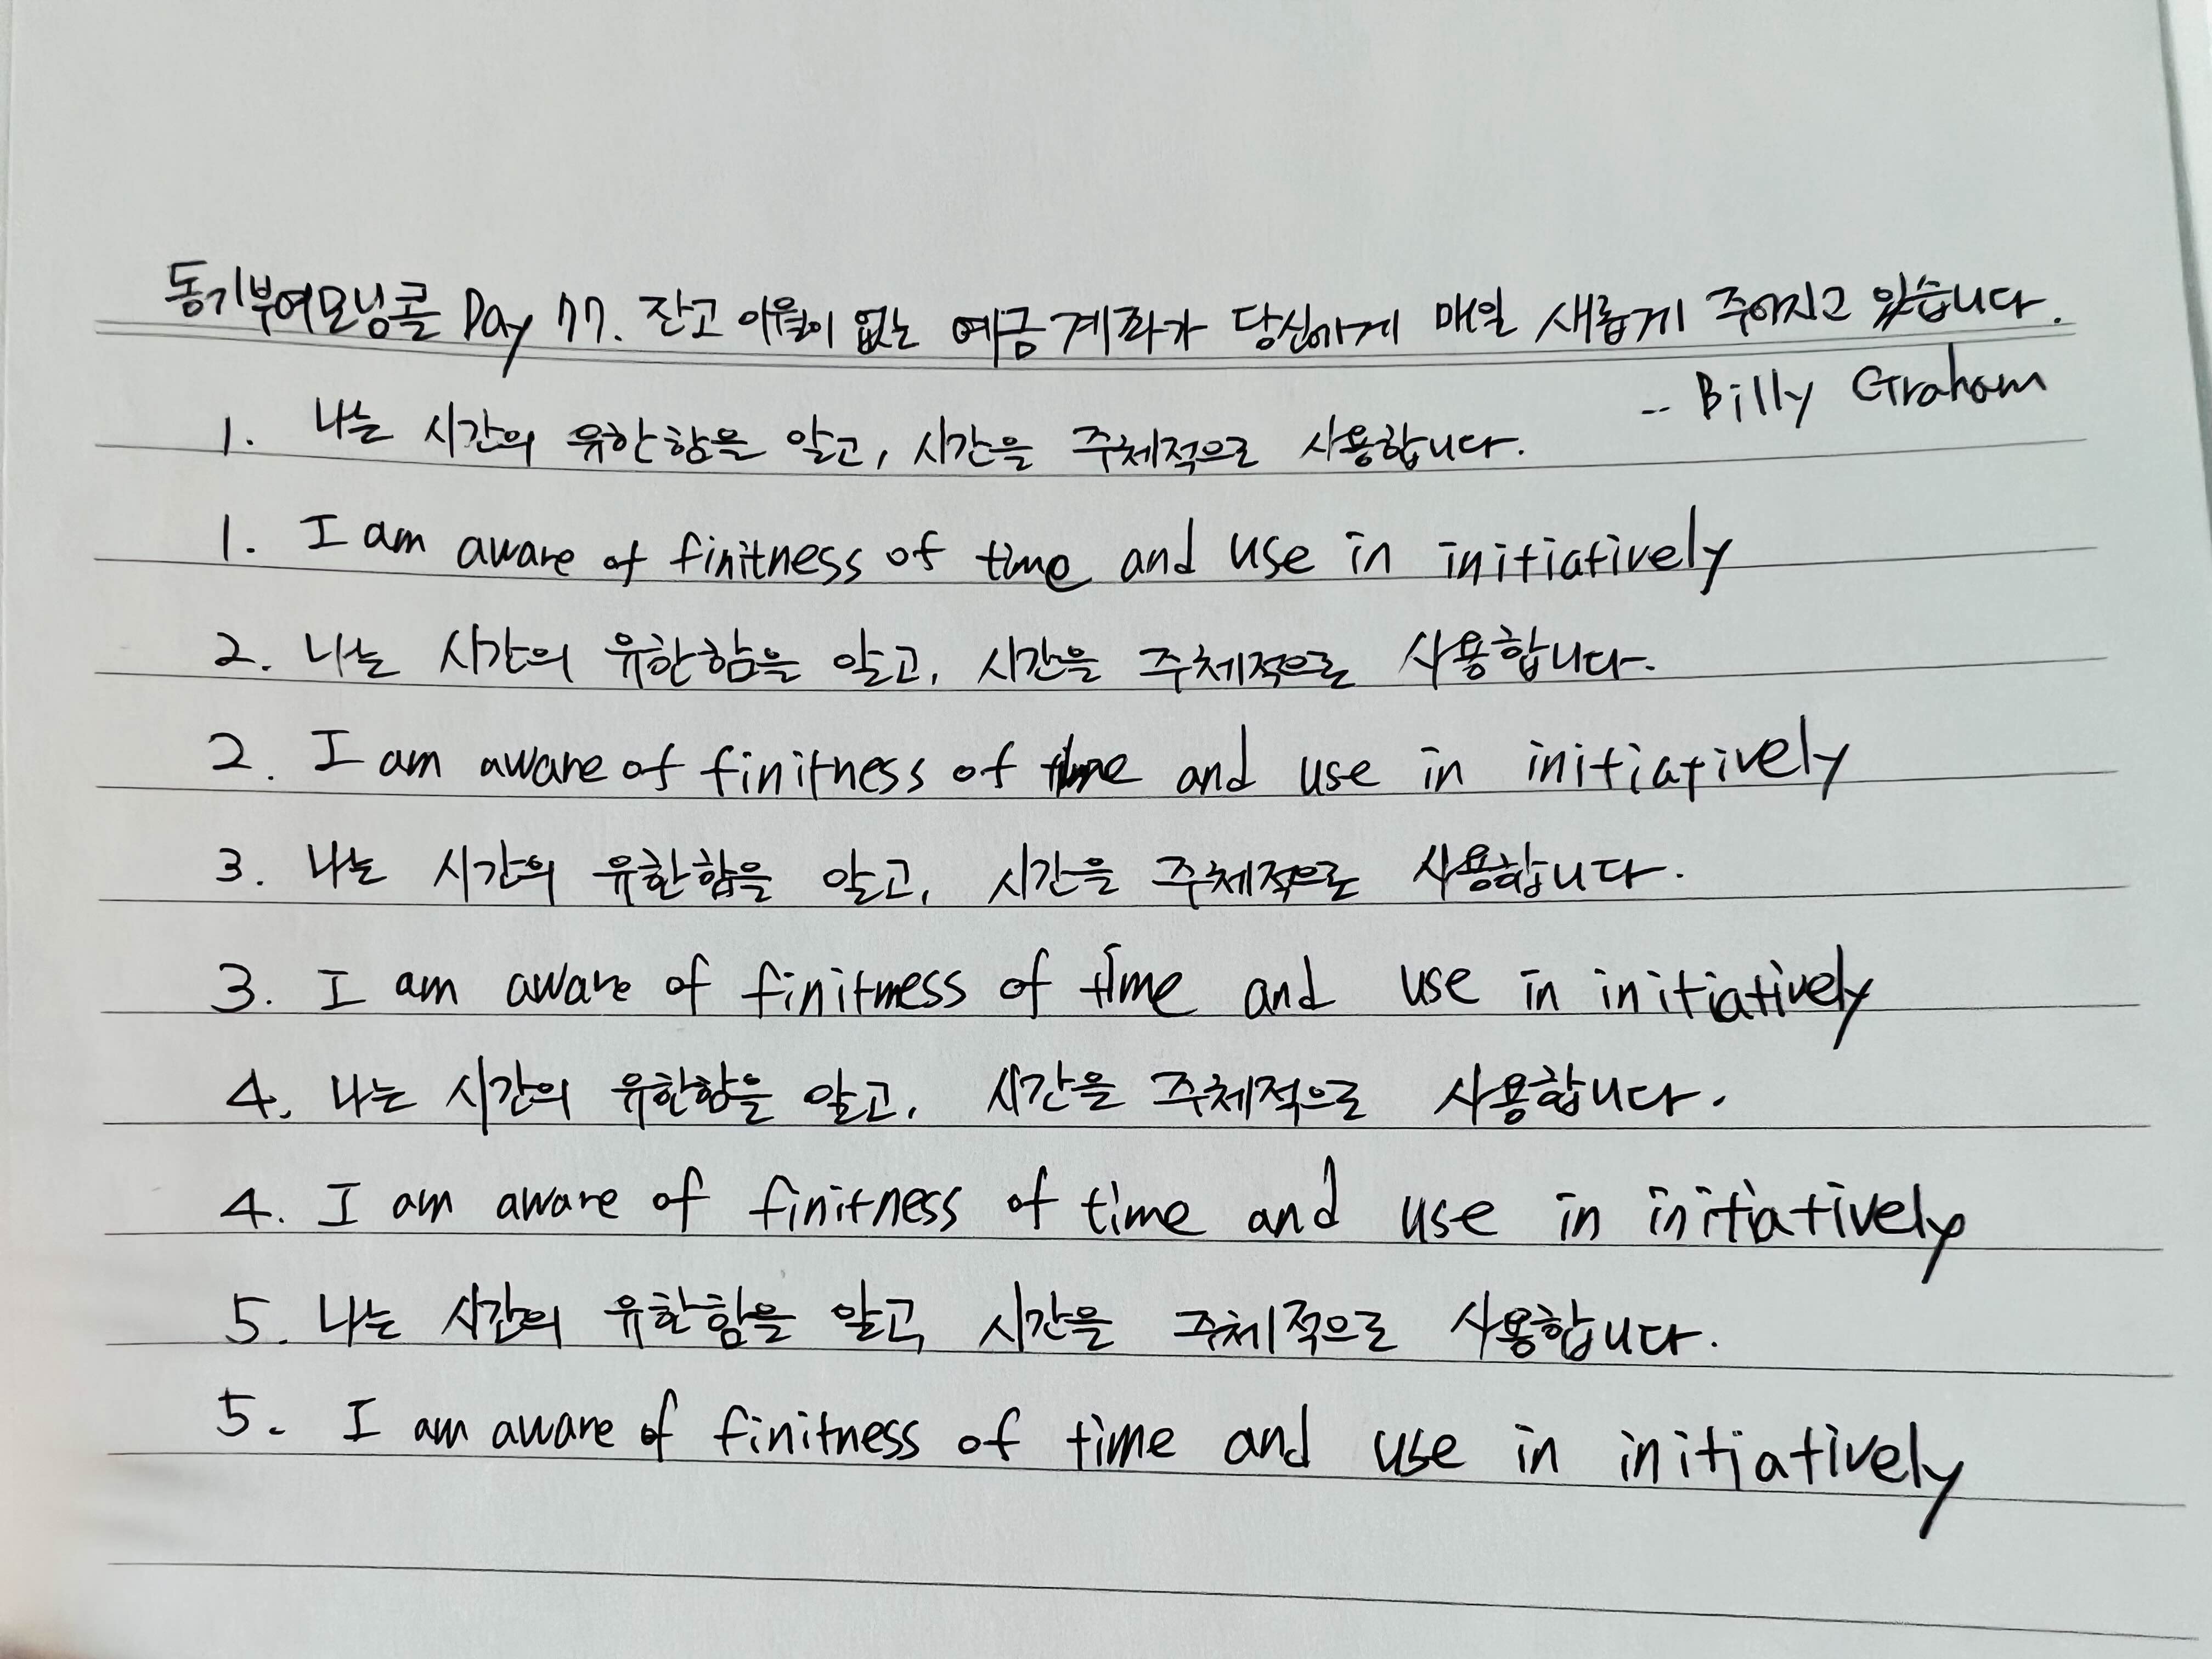 동기부여모닝콜 Day 77. 잔고 이월이 없는 예금계좌가 당신에게 매일 새롭게 주어지고 있습니다.
-- Billy Graham
1. 나는 시간의 유한함을 알고, 시간을 주체적으로 사용합니다.
1. I am aware of finitness of time and use in initiatively
2. 나는 시간의 유한함을 알고, 시간을 주체적으로 사용합니다.
2. I am aware of finitness of time and use in initiatively
3. 나는 시간의 유한함을 알고, 시간을 주체적으로 사용합니다.
3. I am aware of finitness of time and use in initiatively
4. 나는 시간의 유한함을 알고, 시간을 주체적으로 사용합니다.
4. I am aware of finitness of time and use in initiatively
5. 나는 시간의 유한함을 알고, 시간을 주체적으로 사용합니다.
5. I am aware of finitness of time and use in initiatively